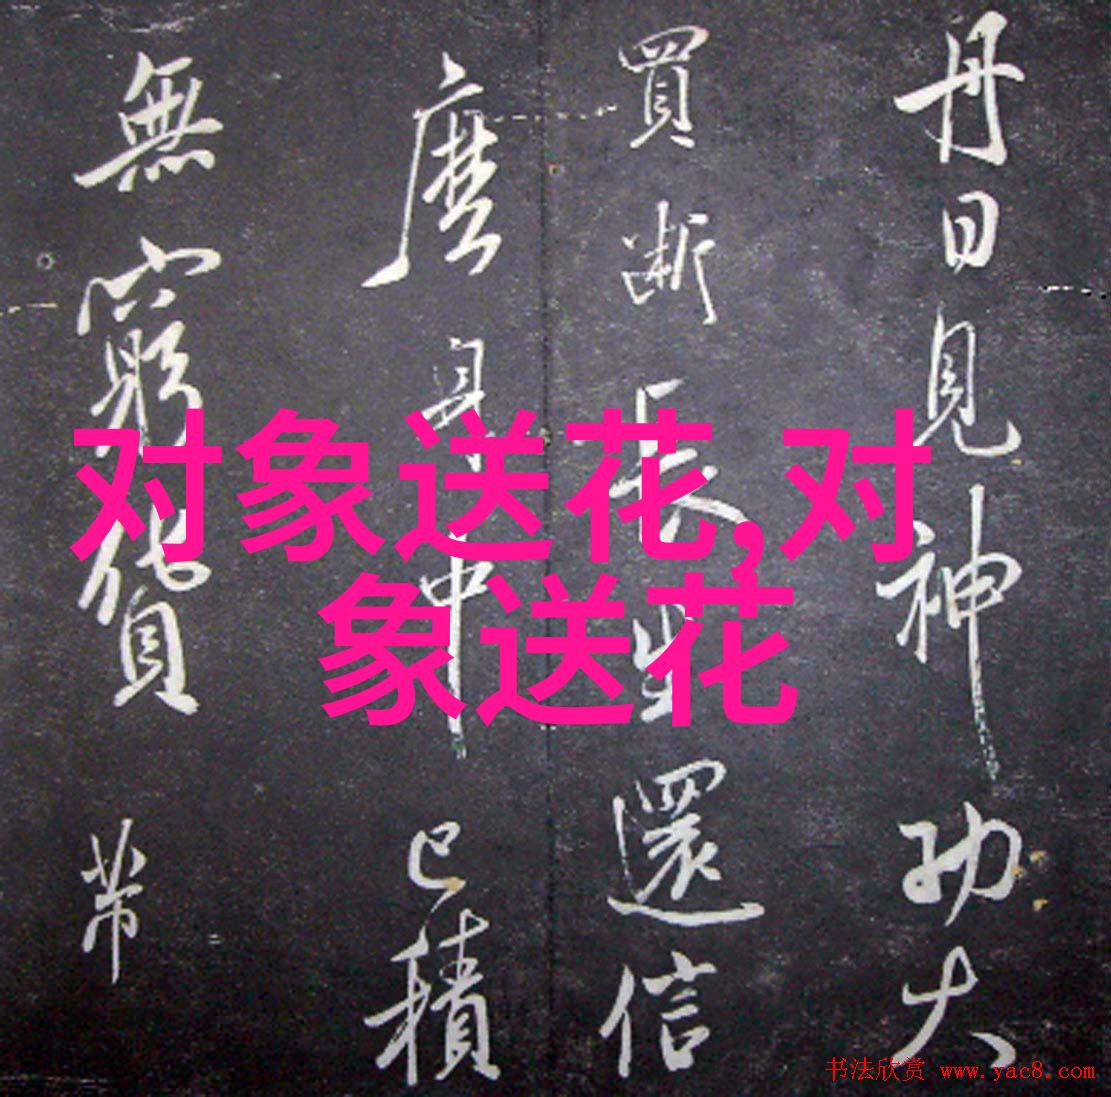 丹日見神功大
買斷長生還信
麼身中已積
無窮貨帶
对象送花,对
象送花
书法欣赏 www.yac8.com